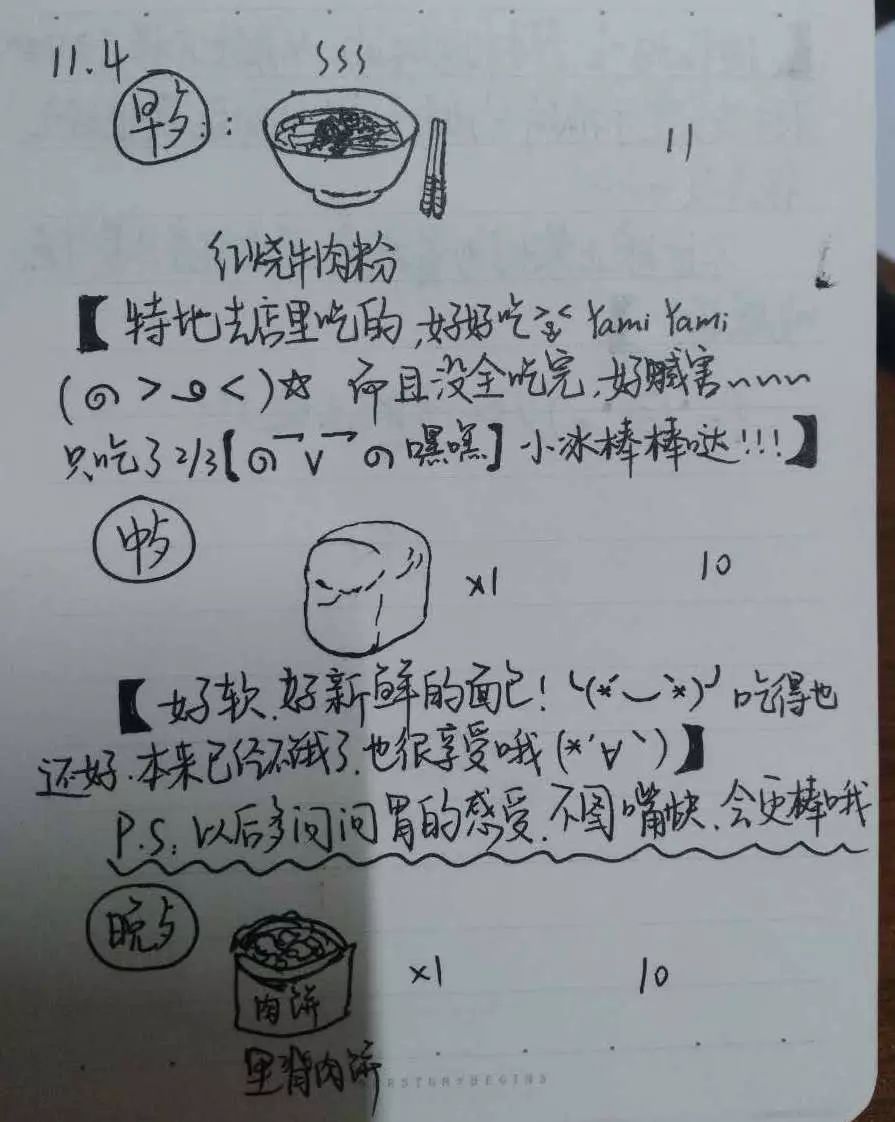 11.4
早歺: 11
红烧牛肉粉
【特地去店里吃的,好好吃 Yami Yami
(൭>و<)☆ 而且没全吃完,好臧害~~~
只吃了2/3【൭→v→൭嘿嘿】小冰棒棒哒!!!】
中歺 x1 10
【好软.好新鲜的面包!╰(*´︶`*)╯吃得也
还好.本来已经不饿了.也很享受哦(*´∀`)】
P.S:以后多问问胃的感受.不图嘴快.会更棒哦
晚歺 x1 10
肉饼
里脊肉饼
RSTORYBEGINS